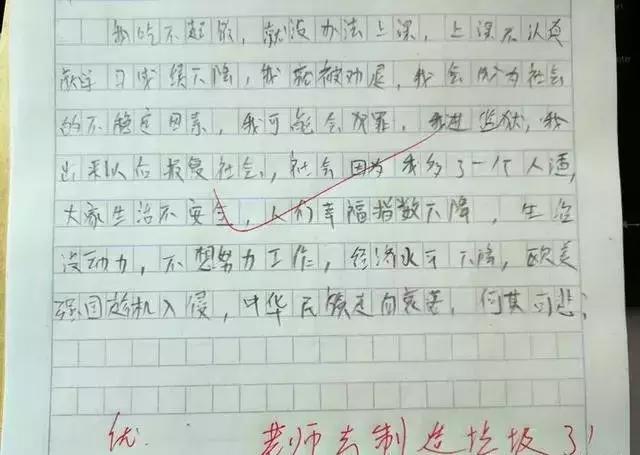 我吃不起饭，就没办法上课，上课不认真
就学习成绩下降，我就被劝退，我会成为社会
的不稳定因素，我可能会犯罪，我进监狱，我
出来以后报复社会，社会因为我多了一个人渣，
大家生活不安全，人们幸福指数下降，生活
没动力，不想努力工作，经济水平下降，欧美
强国趁机入侵，中华民族走向衰落，何其可悲！
优. 老师去制造垃圾了！